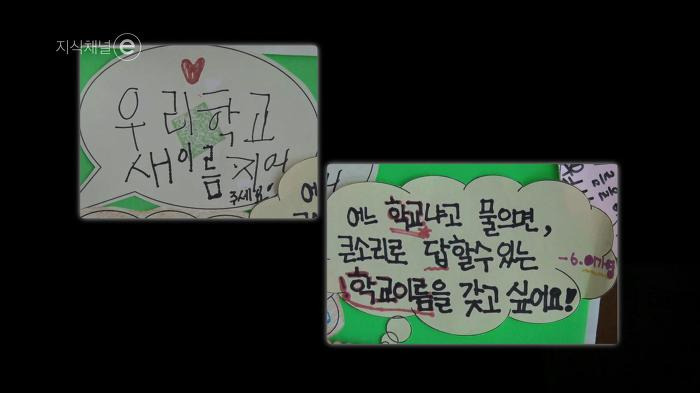 지식채널e
우리학교
새이름지어
주세요.
어느 학교냐고 물으면,
큰소리로 답할수있는
학교이름을 갖고 싶어요!